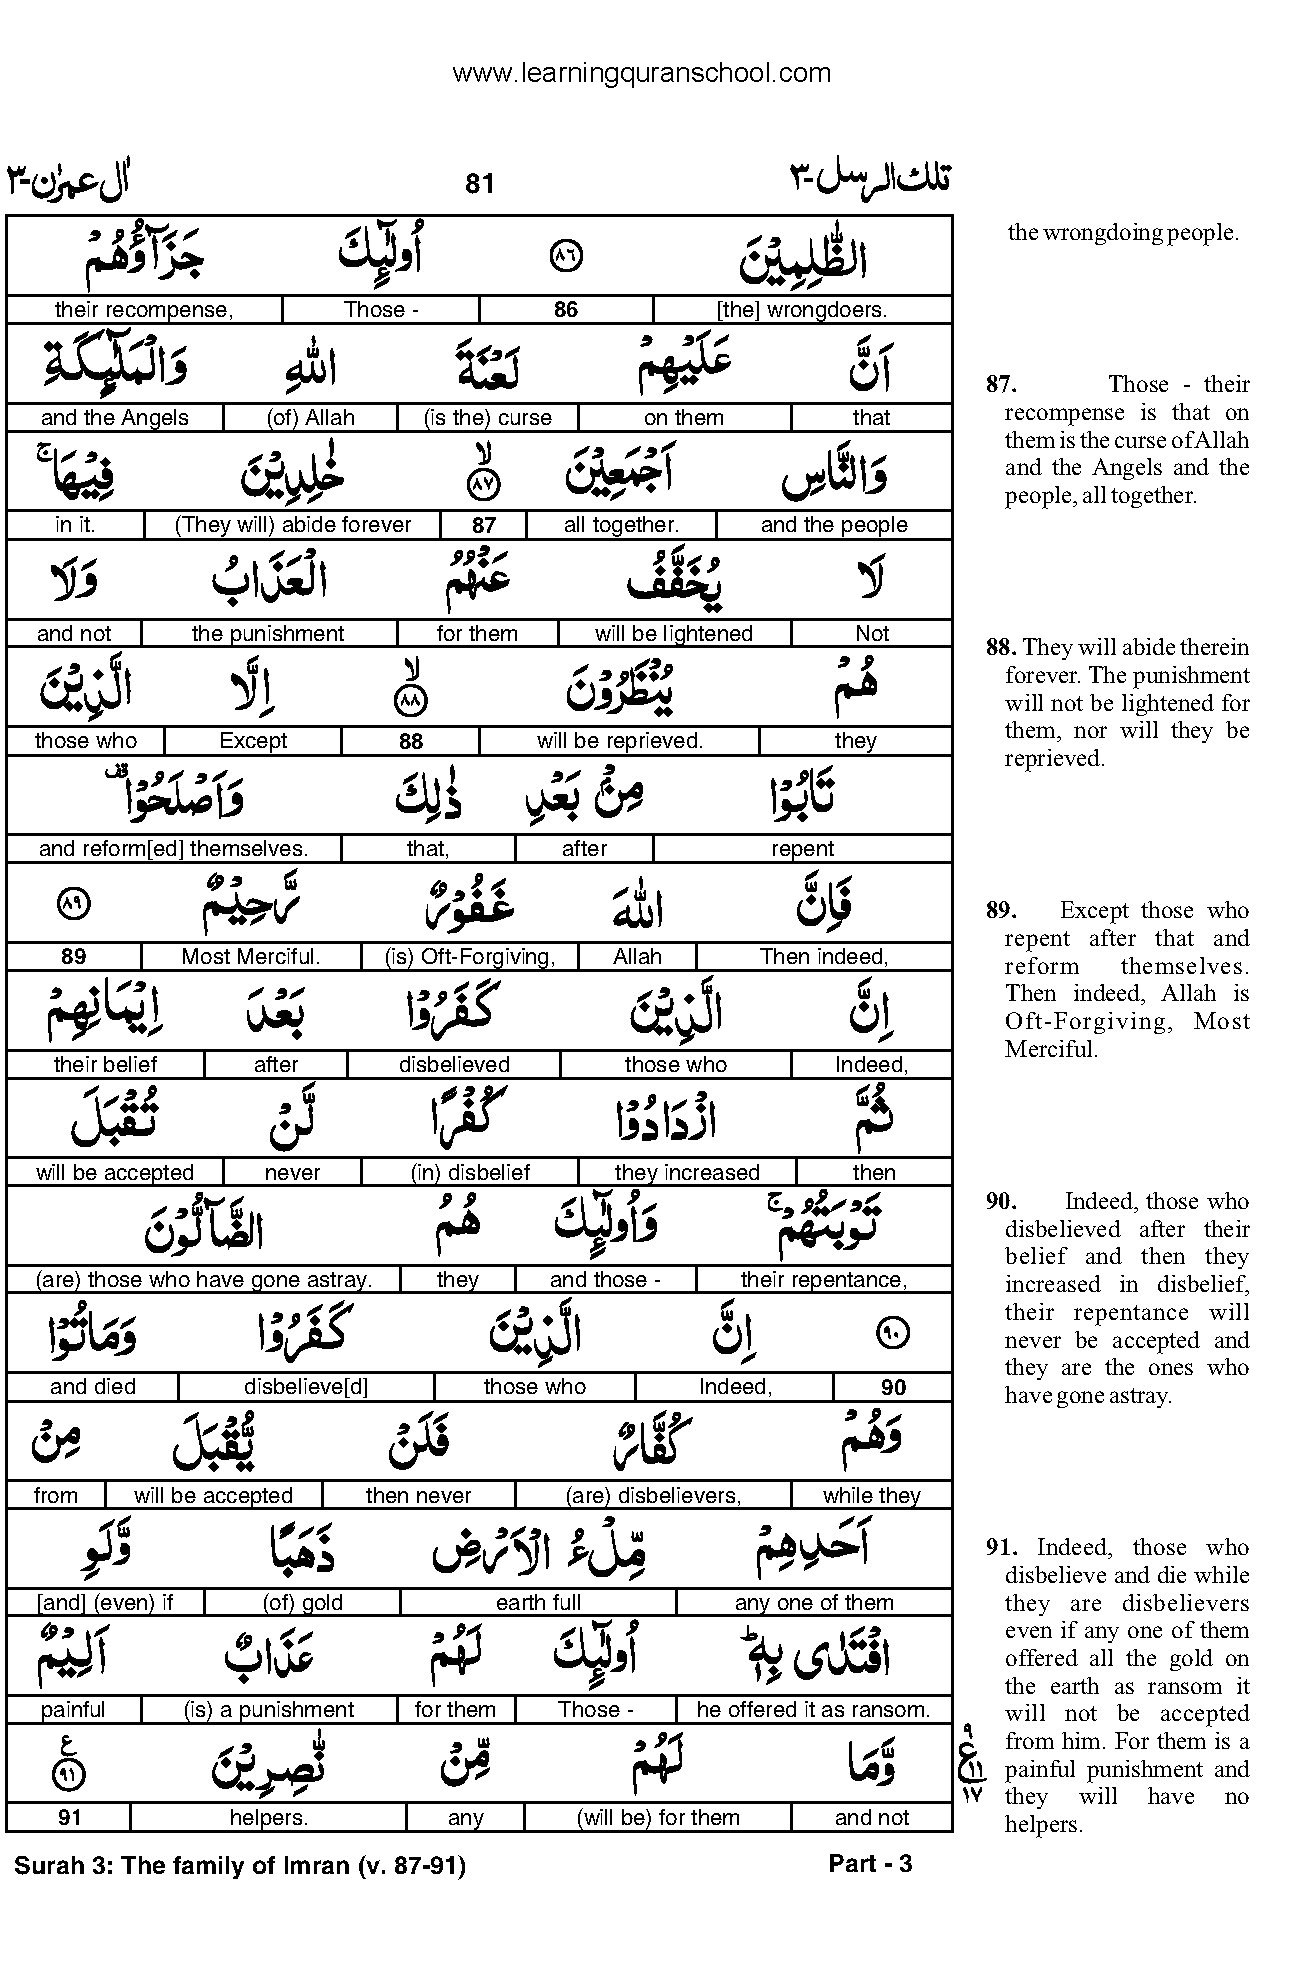 www.learningquranschool.com
تلك الرسل-٣ 81 اٰل عمرٰن-٣
الظّٰلِمِيْنَ ٨٦ اُولٰٓئِكَ جَزَآؤُهُمْ
[the] wrongdoers. 86 Those - their recompense,
اَنَّ عَلَيْهِمْ لَعْنَةَ اللّٰهِ وَالْمَلٰٓئِكَةِ
that on them (is the) curse (of) Allah and the Angels
وَالنَّاسِ اَجْمَعِيْنَ ۙ ٨٧ خٰلِدِيْنَ فِيْهَا ۚ
and the people all together. 87 (They will) abide forever in it.
لَا يُخَفَّفُ عَنْهُمُ الْعَذَابُ وَلَا
Not will be lightened for them the punishment and not
هُمْ يُنْظَرُوْنَ ۙ ٨٨ اِلَّا الَّذِيْنَ
they will be reprieved. 88 Except those who
تَابُوْا مِنْۢ بَعْدِ ذٰلِكَ وَاَصْلَحُوْا ۟ قف
repent after that, and reform[ed] themselves.
فَاِنَّ اللّٰهَ غَفُوْرٌ رَّحِيْمٌ ٨٩
Then indeed, Allah (is) Oft-Forgiving, Most Merciful. 89
اِنَّ الَّذِيْنَ كَفَرُوْا بَعْدَ اِيْمَانِهِمْ
Indeed, those who disbelieved after their belief
ثُمَّ ازْدَادُوْا كُفْرًا لَّنْ تُقْبَلَ
then they increased (in) disbelief never will be accepted
تَوْبَتُهُمْ ۚ وَاُولٰٓئِكَ هُمُ الضَّآلُّوْنَ
their repentance, and those - they (are) those who have gone astray.
٩٠ اِنَّ الَّذِيْنَ كَفَرُوْا وَمَاتُوْا
90 Indeed, those who disbelieve[d] and died
وَهُمْ كُفَّارٌ فَلَنْ يُّقْبَلَ مِنْ
while they (are) disbelievers, then never will be accepted from
اَحَدِهِمْ مِّلْءُ الْاَرْضِ ذَهَبًا وَّلَوِ
any one of them earth full (of) gold [and] (even) if
افْتَدٰى بِهٖ ؕ اُولٰٓئِكَ لَهُمْ عَذَابٌ اَلِيْمٌ
he offered it as ransom. Those - for them (is) a punishment painful
وَّمَا لَهُمْ مِّنْ نّٰصِرِيْنَ ع ٩١
and not (will be) for them any helpers. 91
٩
ع ١١
١٧
Surah 3: The family of Imran (v. 87-91) Part - 3
the wrongdoing people.
87. Those - their
recompense is that on
them is the curse of Allah
and the Angels and the
people, all together.
88. They will abide therein
forever. The punishment
will not be lightened for
them, nor will they be
reprieved.
89. Except those who
repent after that and
reform themselves.
Then indeed, Allah is
Oft-Forgiving, Most
Merciful.
90. Indeed, those who
disbelieved after their
belief and then they
increased in disbelief,
their repentance will
never be accepted and
they are the ones who
have gone astray.
91. Indeed, those who
disbelieve and die while
they are disbelievers
even if any one of them
offered all the gold on
the earth as ransom it
will not be accepted
from him. For them is a
painful punishment and
they will have no
helpers.